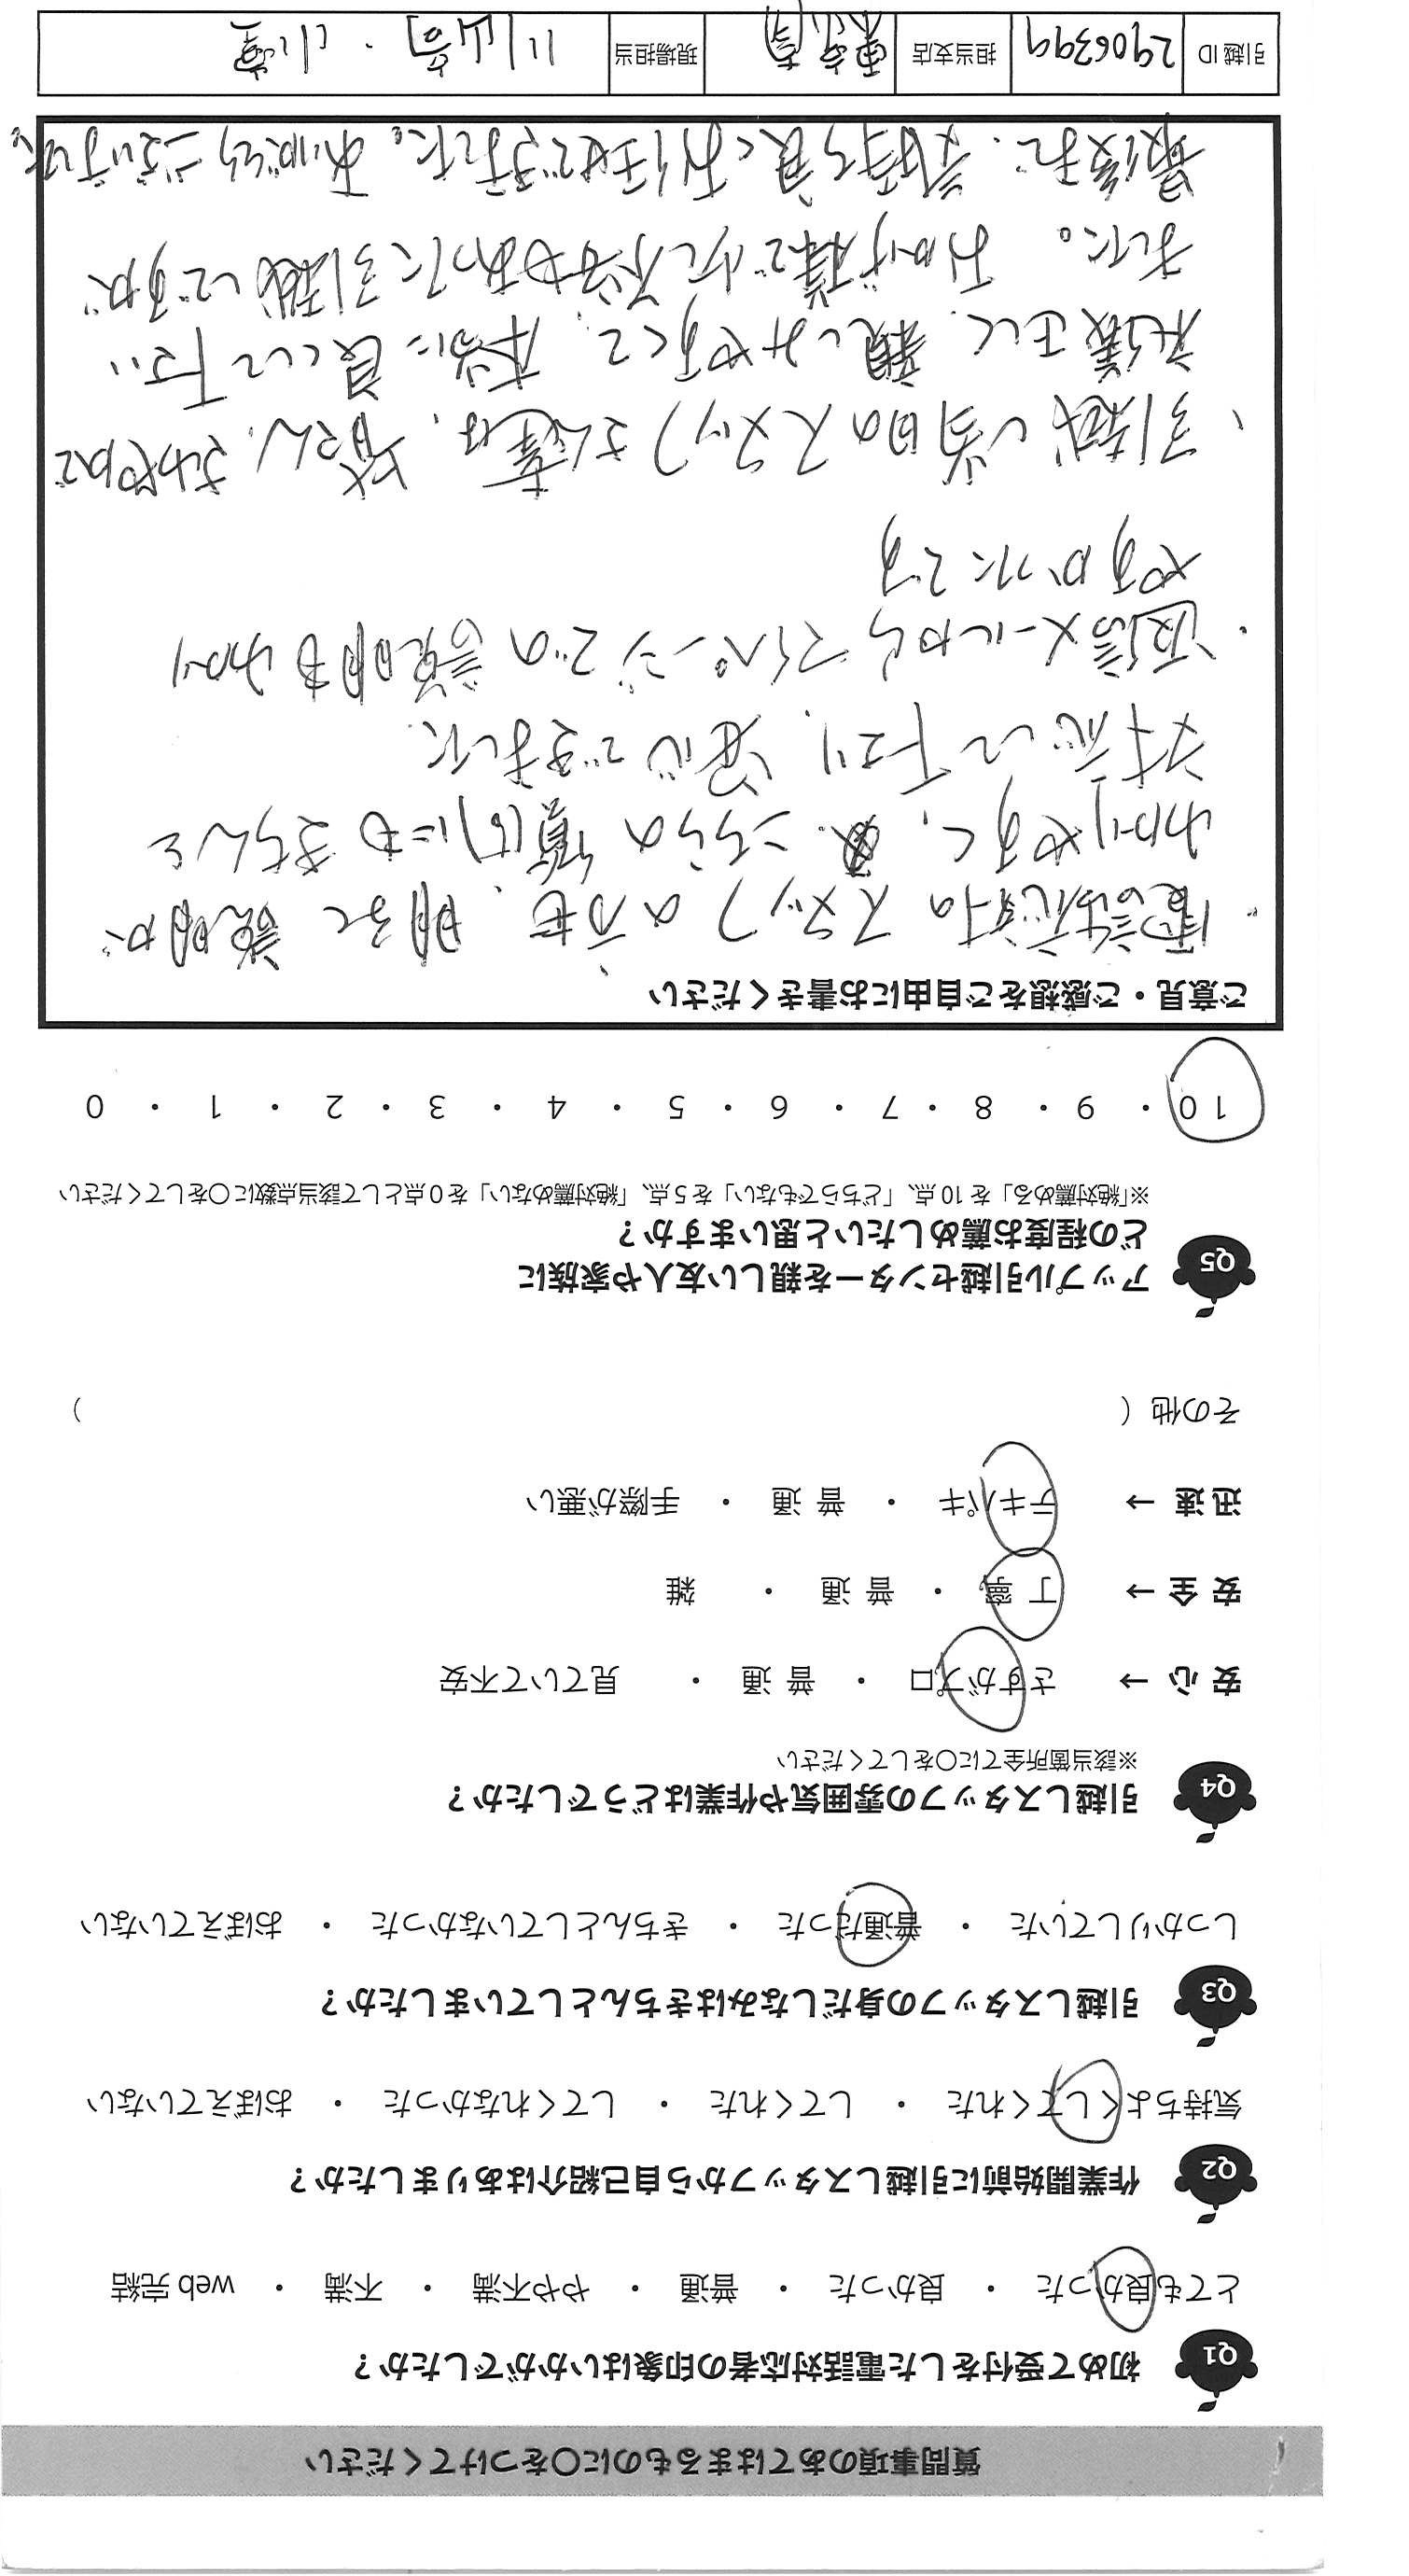 質問事項のあてはまるものに〇をつけてください
Q1 初めて受付をした電話対応者の印象はいかがでしたか？
とても良かった ・ 良かった ・ 普通 ・ やや不満 ・ 不満 ・ web 完結
Q2 作業開始前に引越しスタッフから自己紹介はありましたか？
気持ちよくしてくれた ・ してくれた ・ してくれなかった ・ おぼえていない
Q3 引越しスタッフの身だしなみはきちんとしていましたか？
しっかりしていた ・ 普通だった ・ きちんとしていなかった ・ おぼえていない
Q4 引越しスタッフの雰囲気や作業はどうでしたか？
※該当箇所全てに〇をしてください
安 心 → さすがプロ ・ 普 通 ・ 見ていて不安
安 全 → 丁 寧 ・ 普 通 ・ 雑
迅 速 → テキパキ ・ 普 通 ・ 手際が悪い
その他（ ）
Q5 アップル引越センターを親しい友人や家族に
どの程度お薦めしたいと思いますか？
※「絶対薦める」を 10 点、「どちらでもない」を 5 点、「絶対薦めない」を 0 点として該当点数に〇をしてください
10 ・ 9 ・ 8 ・ 7 ・ 6 ・ 5 ・ 4 ・ 3 ・ 2 ・ 1 ・ 0
ご意見・ご感想をご自由にお書きください
・電話応対のスタッフの方も、明るく説明が
わかりやすく、こちらの質問にもきちんと
対応して下さり、安心できました
・返信メールからマイページでの説明もわかり
やすかったです
・引越し当日のスタッフさん達は、皆さん、さわやかで
礼儀正しく、親しみやすくて、本当に良くして下さい
ました。おかげ様で少し不安もあった引越しですが
最後まで、気持ち良くお任せできました。ありがとうございました。
引越 ID 2906399 担当支店 東京南 現場担当 川崎・小室